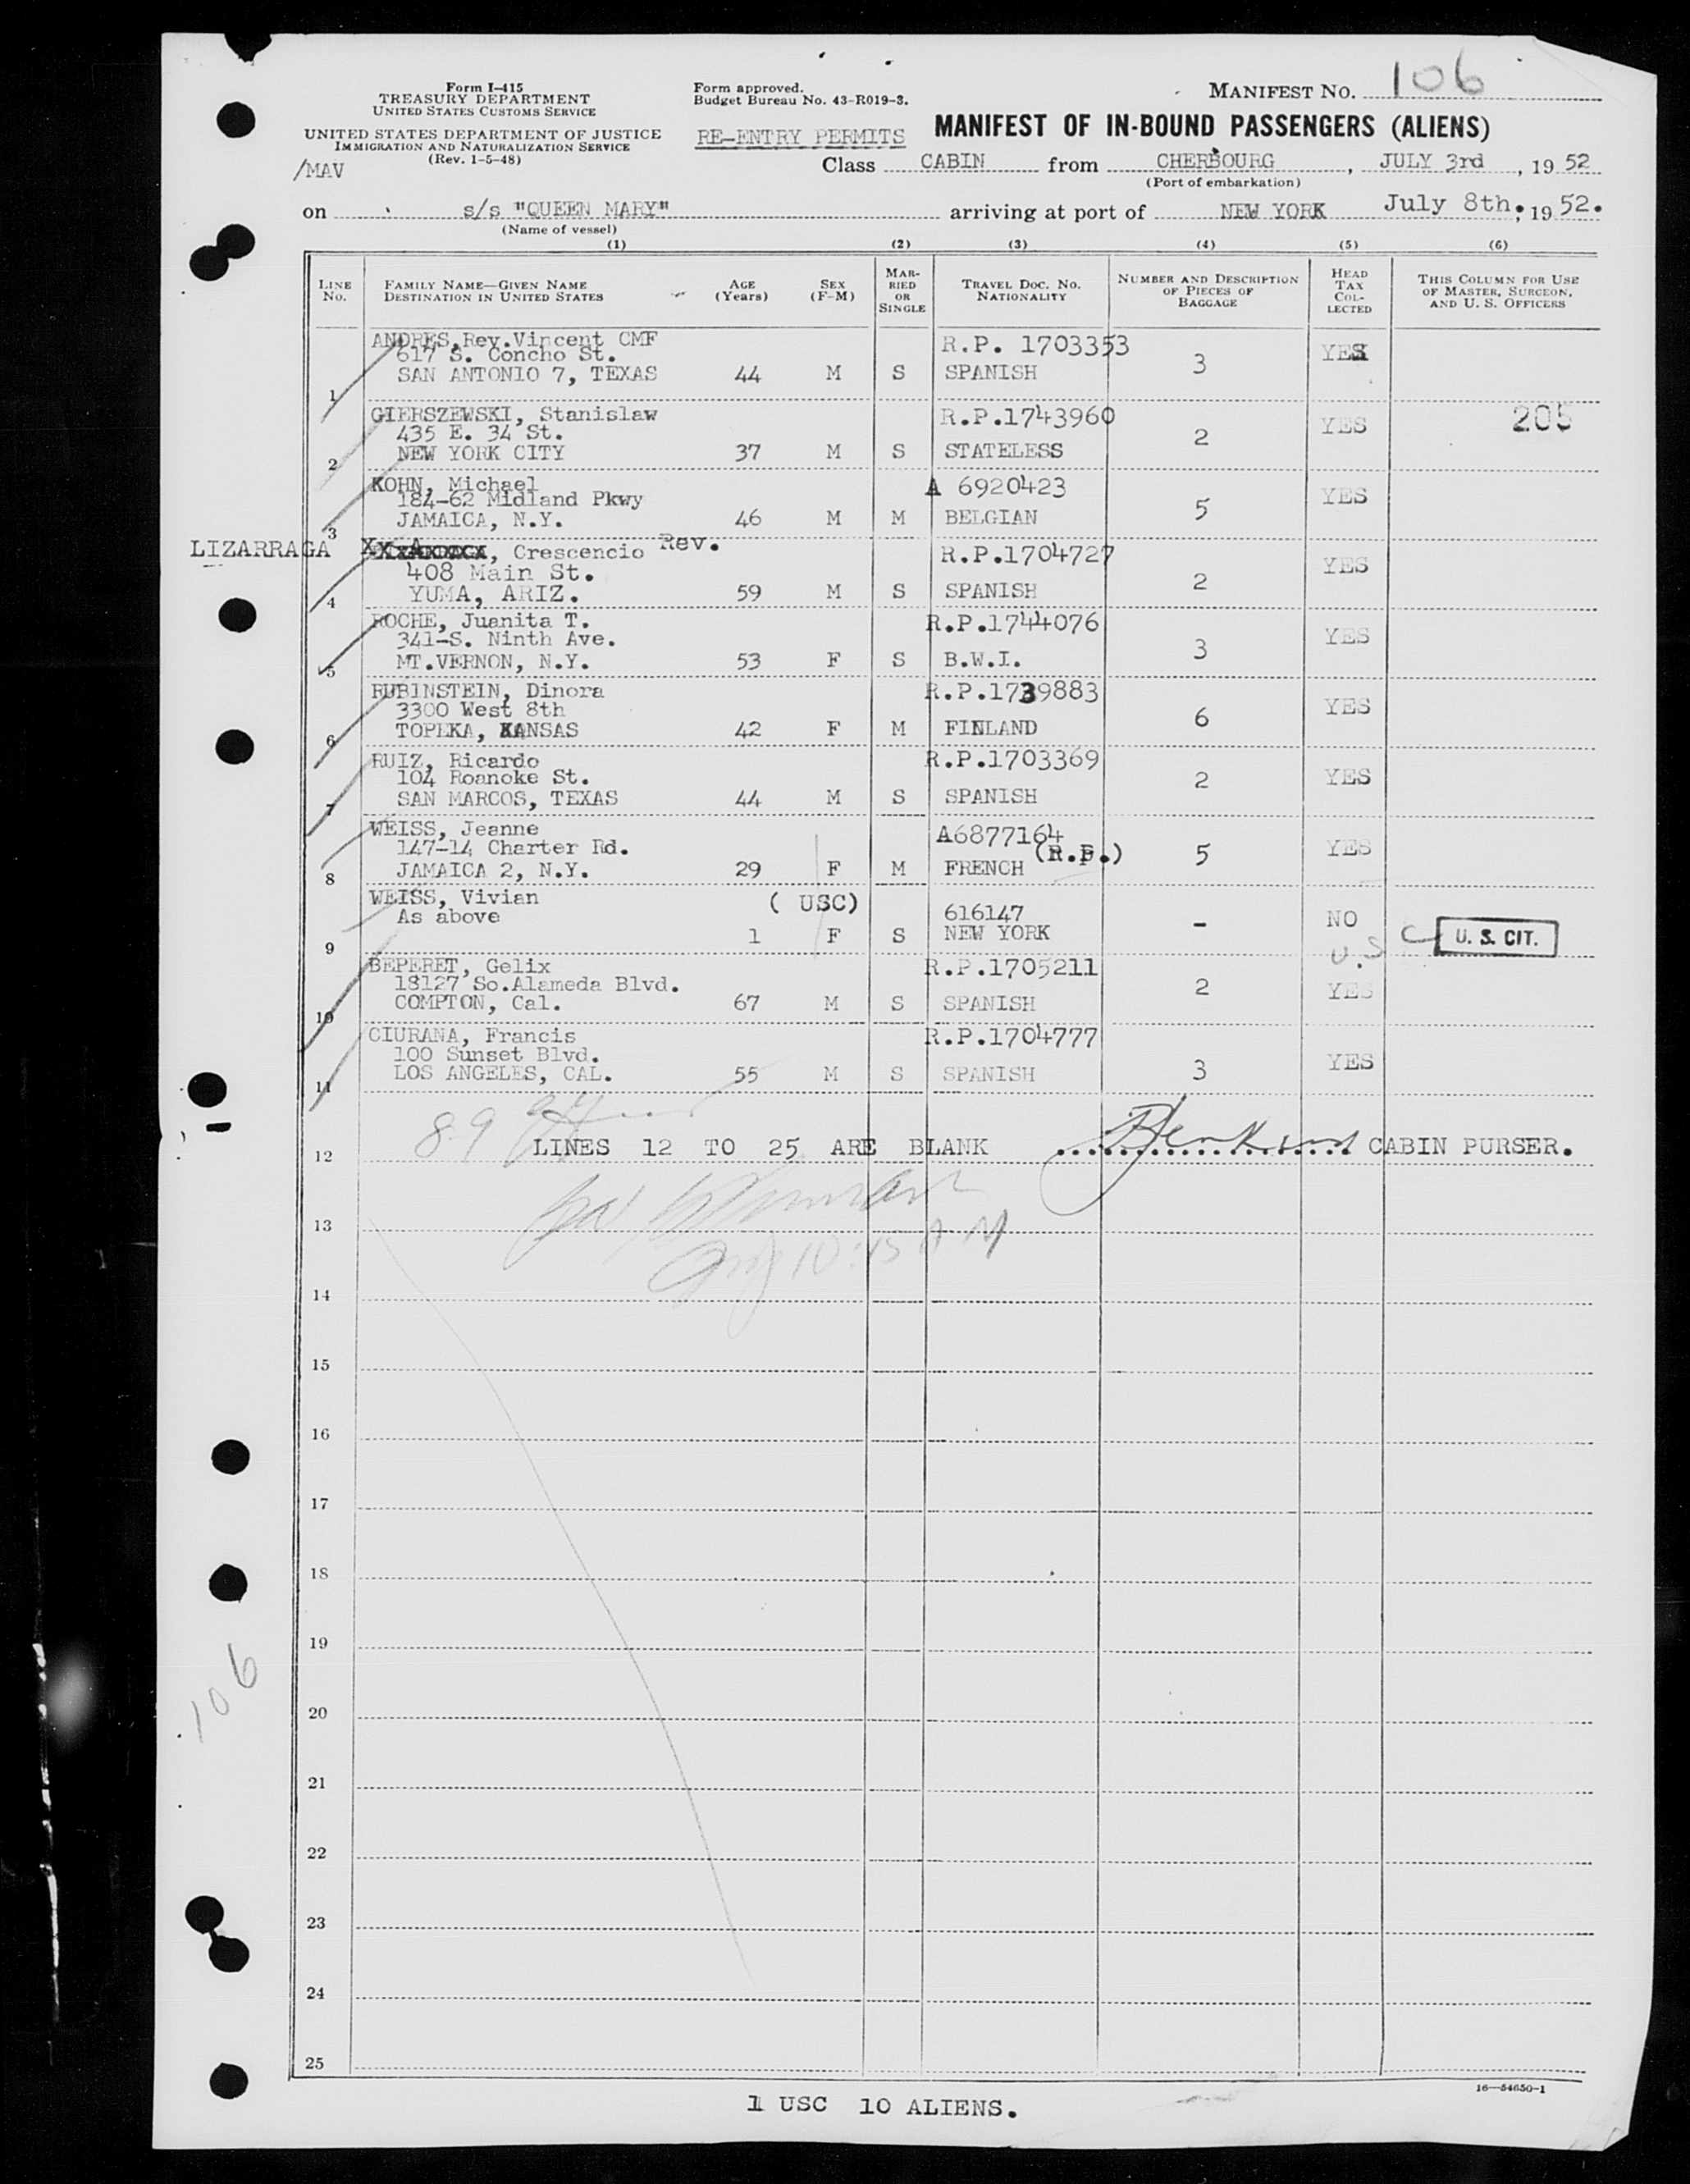 Form I-415
TREASURY DEPARTMENT
UNITED STATES CUSTOMS SERVICE
UNITED STATES DEPARTMENT OF JUSTICE
IMMIGRATION AND NATURALIZATION SERVICE
(Rev. 1-5-48)
/MAV
Form approved.
Budget Bureau No. 43-R019-3.
RE-ENTRY PERMITS
MANIFEST NO. 106
MANIFEST OF IN-BOUND PASSENGERS (ALIENS)
Class CABIN from CHERBOURG, JULY 3rd, 19 52
(Port of embarkation)
on s/s "QUEEN MARY" arriving at port of NEW YORK July 8th., 19 52.
(Name of vessel)
(1) (2) (3) (4) (5) (6)
LINE No. FAMILY NAME—GIVEN NAME DESTINATION IN UNITED STATES AGE (Years) SEX (F-M) MARRIED OR SINGLE TRAVEL DOC. NO. NATIONALITY NUMBER AND DESCRIPTION OF PIECES OF BAGGAGE HEAD TAX COLLECTED THIS COLUMN FOR USE OF MASTER, SURGEON, AND U. S. OFFICERS
ANDRES, Rev. Vincent CMF R.P. 1703353
617 S. Concho St. 3 YES
1 SAN ANTONIO 7, TEXAS 44 M S SPANISH
GIERSZEWSKI, Stanislaw R.P.1743960 205
435 E. 34 St. 2 YES
2 NEW YORK CITY 37 M S STATELESS
KOHN, Michael A 6920423
184-62 Midland Pkwy 5 YES
3 JAMAICA, N.Y. 46 M M BELGIAN
LIZARRAGA , Crescencio Rev. R.P.1704727
408 Main St. 2 YES
4 YUMA, ARIZ. 59 M S SPANISH
ROCHE, Juanita T. R.P.1744076
341-S. Ninth Ave. 3 YES
5 MT.VERNON, N.Y. 53 F S B.W.I.
RUBINSTEIN, Dinora R.P.1739883
3300 West 8th 6 YES
6 TOPEKA, KANSAS 42 F M FINLAND
RUIZ, Ricardo R.P.1703369
104 Roanoke St. 2 YES
7 SAN MARCOS, TEXAS 44 M S SPANISH
WEISS, Jeanne A6877164
147-14 Charter Rd. (R.P.) 5 YES
8 JAMAICA 2, N.Y. 29 F M FRENCH
WEISS, Vivian ( USC)
As above 616147 - NO
9 1 F S NEW YORK U.S C U. S. CIT.
BEPERET, Gelix R.P.1705211
18127 So.Alameda Blvd. 2 YES
10 COMPTON, Cal. 67 M S SPANISH
CIURANA, Francis R.P.1704777
100 Sunset Blvd. YES
11 LOS ANGELES, CAL. 55 M S SPANISH 3
89
12 LINES 12 TO 25 ARE BLANK CABIN PURSER.
13
10:45 A M
14
15
16
17
18
19
106
20
21
22
23
24
25
16—54650-1
1 USC 10 ALIENS.